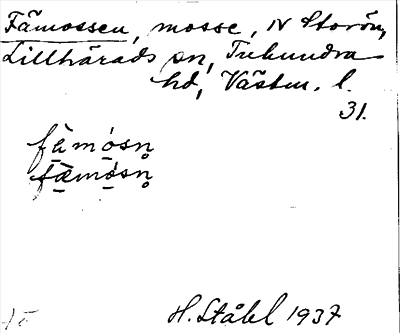 Fämossen, mosse, N Storön,
Lillhärads sn, Tuhundra
hd, Västm. l.
31.
fämósn̥
fæmósn̥
H. Ståhl 1937